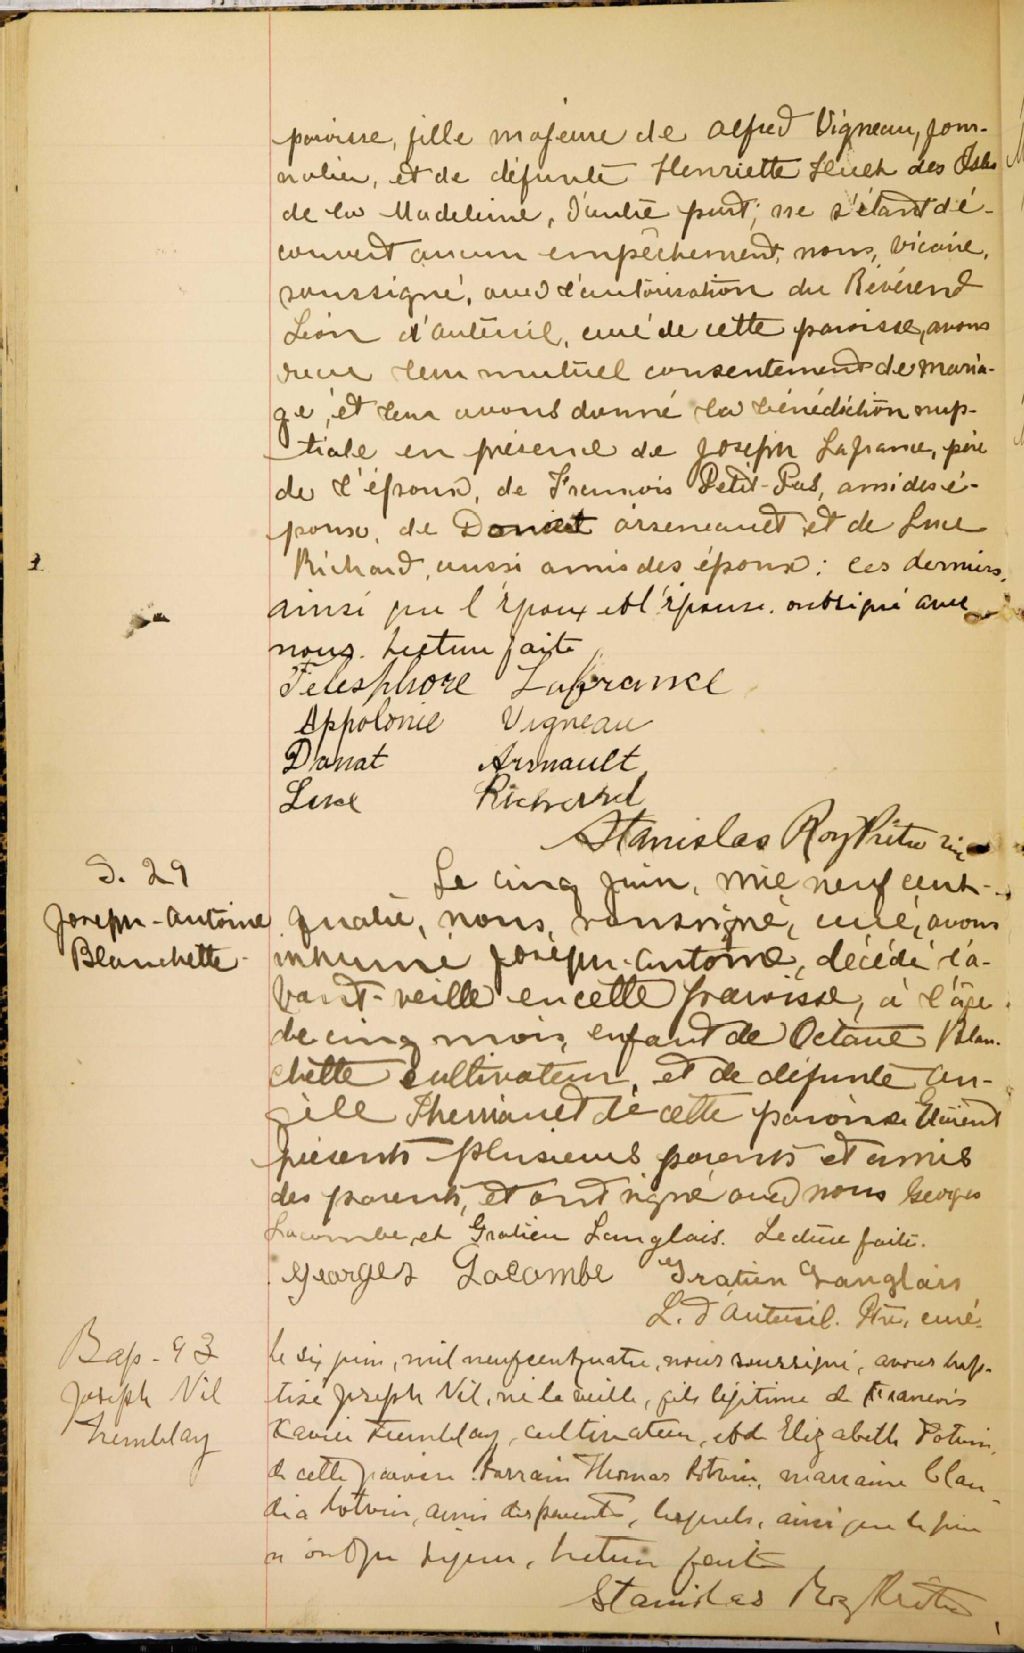 paroisse, fille majeure de Alfred Vigneau, jour-
nalier, et de défunte Henriette des Isles
de la Madeleine, d'autre part; ne s'étant dé-
couvert aucun empêchement, nous, vicaire,
soussigné, avec l'autorisation du Révérend
Léon d'Auteuil, curé de cette paroisse, avons
reçu leur mutuel consentement de maria-
ge, et leur avons donné la bénédiction nup-
tiale en présence de Joseph Lafrance, père
de l'époux, de Francois Petit-Pas, ami des é-
poux, de Donat Arseneault et de Luce
Richard, aussi amis des époux: ces derniers,
ainsi que l'époux et l'épouse, ont signé avec
nous. Lecture faite
Telesphore Lafrance
Appolonie Vigneau
Donat Arsnault
Luce Richard
Stanislas Roy Ptre vic
S. 29
Joseph-Antoine
Blanchette
Le cinq juin, mil neuf cent-
quatre, nous, soussigné, curé, avons
inhumé Joseph-Antoine, décédé l'a-
vant-veille en cette paroisse, à l'âge
de cinq mois, enfant de Octave Blan-
chette cultivateur, et de défunte An-
gèle de cette paroisse Etaient
présents plusieurs parents et amis
des parents, et ont signé avec nous Georges
Lacombe et Gratien Langlais. Lecture faite.
Georges Lacombe Gratien Langlais
L. d'Auteuil. Ptre, curé.
Bap - 93
Joseph Nil
Tremblay
le six juin, mil neuf cent quatre, nous soussigné, avons bap-
tisé Joseph Nil, né la veille, fils légitime de Francois
Xavier Tremblay, cultivateur, et de Elizabeth Potvin,
de cette paroisse. Parrain Thomas Potvin, marraine Clau-
dia Potvin, amis des parents, lesquels, ainsi que le père
n'ont pu signer, lecture faite
Stanislas Roy Ptre